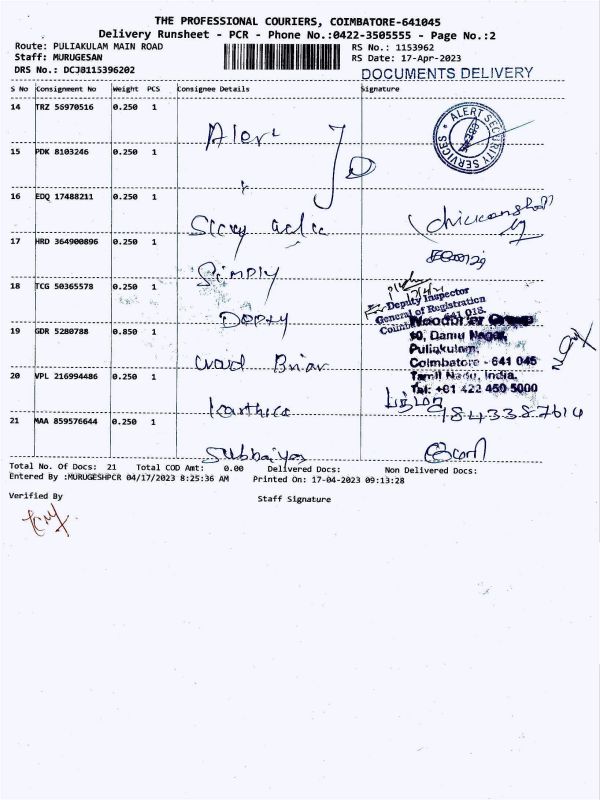 THE PROFESSIONAL COURIERS, COIMBATORE-641045
Delivery Runsheet - PCR - Phone No.:0422-3505555 - Page No.:2
Route: PULIAKULAM MAIN ROAD
RS No.: 1153962
Staff: MURUGESAN
RS Date: 17-Apr-2023
DRS No.: DCJ8115396202
DOCUMENTS DELIVERY
S No Consignment No Weight PCS Consignee Details Signature
14 TRZ 56970516 0.250 1
Alert
ALERT SECURITY SERVICES
15 PDK 8103246 0.250 1
16 EDQ 17488211 0.250 1
17 HRD 364900896 0.250 1
Simply
18 TCG 50365578 0.250 1
Depty
Deputy Inspector
General of Registration
Coimbatore - 641 018.
19 GDR 5280788 0.850 1
Woodbriar Group
Damu Nagar,
Puliakulam,
Coimbatore - 641 045
Tamil Nadu, India.
Tel: +91 422 450 5000
wood Briar
20 VPL 216994486 0.250 1
Karthica
9843387614
21 MAA 859576644 0.250 1
Subbaiya
Total No. Of Docs: 21 Total COD Amt: 0.00 Delivered Docs: Non Delivered Docs:
Entered By :MURUGESHPCR 04/17/2023 8:25:36 AM Printed On: 17-04-2023 09:13:28
Verified By
Staff Signature